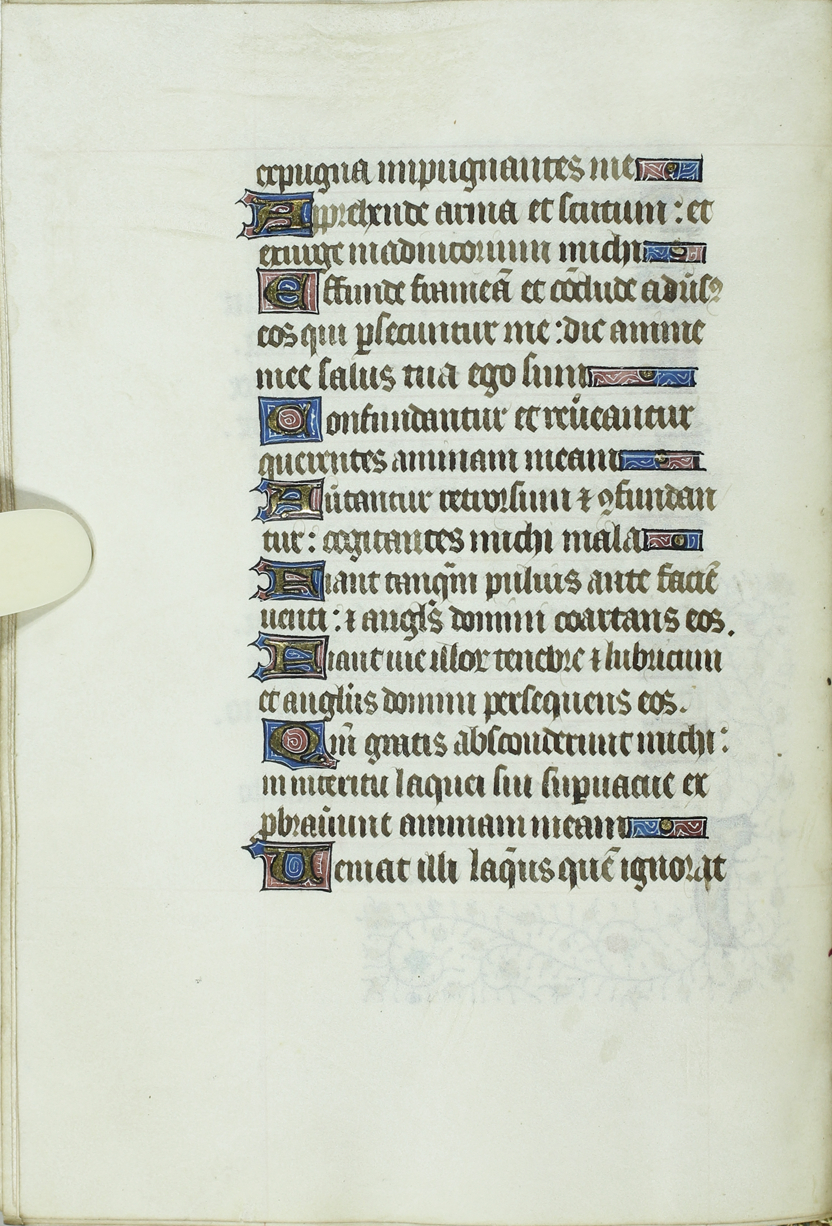 expugna impugnantes me
Apprehende arma et scutum : et
exurge in adiutorium michi
Effunde frameā et cōclude adūsꝰ
eos qui ꝑsecuntur me : dic anime
mee salus tua ego sum
Confundantur et reūeantur
querentes animam meam
Aūtantur retrorsum ⁊ ꝯfundan
tur : cogitantes michi mala
Fiant tanqͣm puluis ante faciē
uenti : ⁊ angl̄s domini coartans eos.
Fiant uie illoꝝ tenebre ⁊ lubricum
et angl̄us domini persequens eos.
Qm̄ gratis absconderunt michi :
in interitu laquei sui suꝑuacue ex
ꝓbraūunt animam meam
Ueniat illi laq̄us quē ignorat